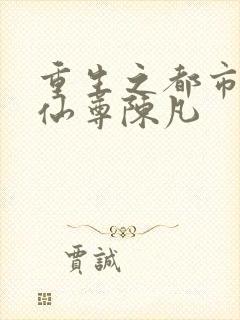 重生之都市
仙尊陳凡
賈誠